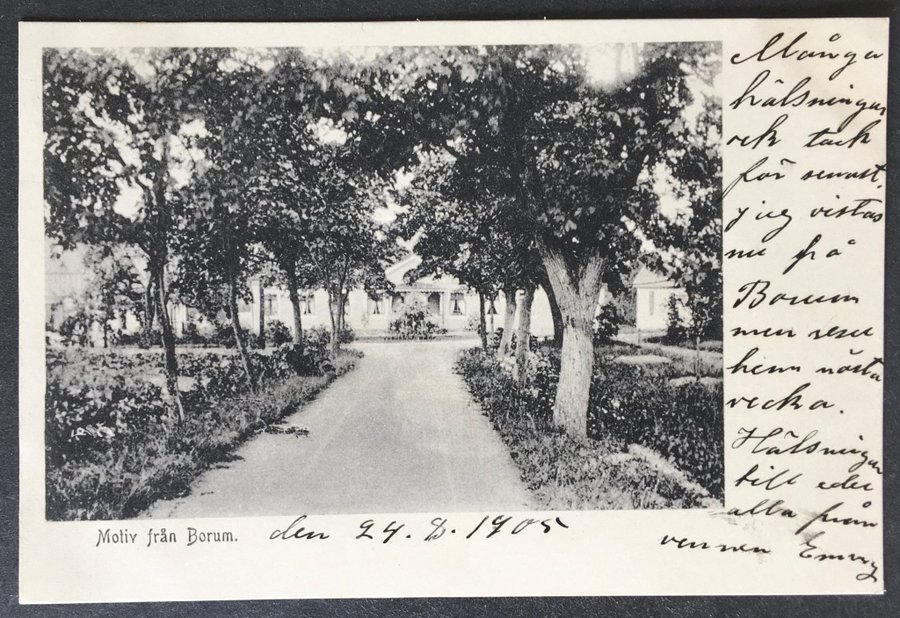 Många
hälsningar
ock tack
för senast.
jag vistas
nu från
Borum
men reser
hem nästa
vecka.
Hälsningar
till eder
alla från
vännen Emmy
Motiv från Borum.
den 24. 8. 1905